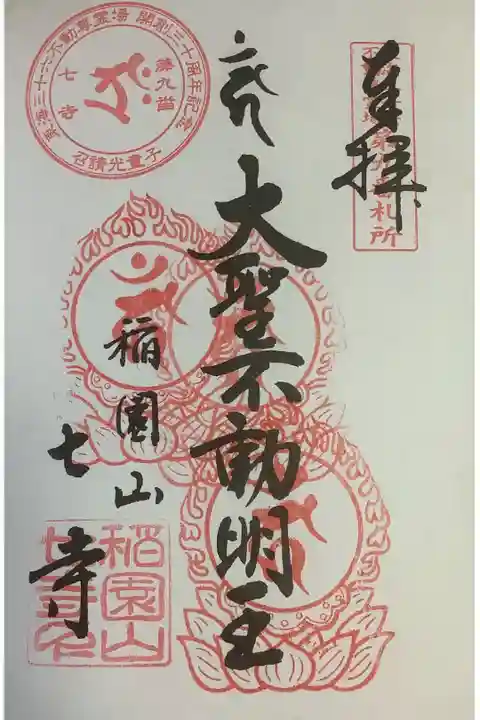 奉拝
大聖不動明王
稲園山
七寺
東海三十六不動尊霊場 開創三十周年記念
第九番
七寺
召請光童子
札所
稲園山